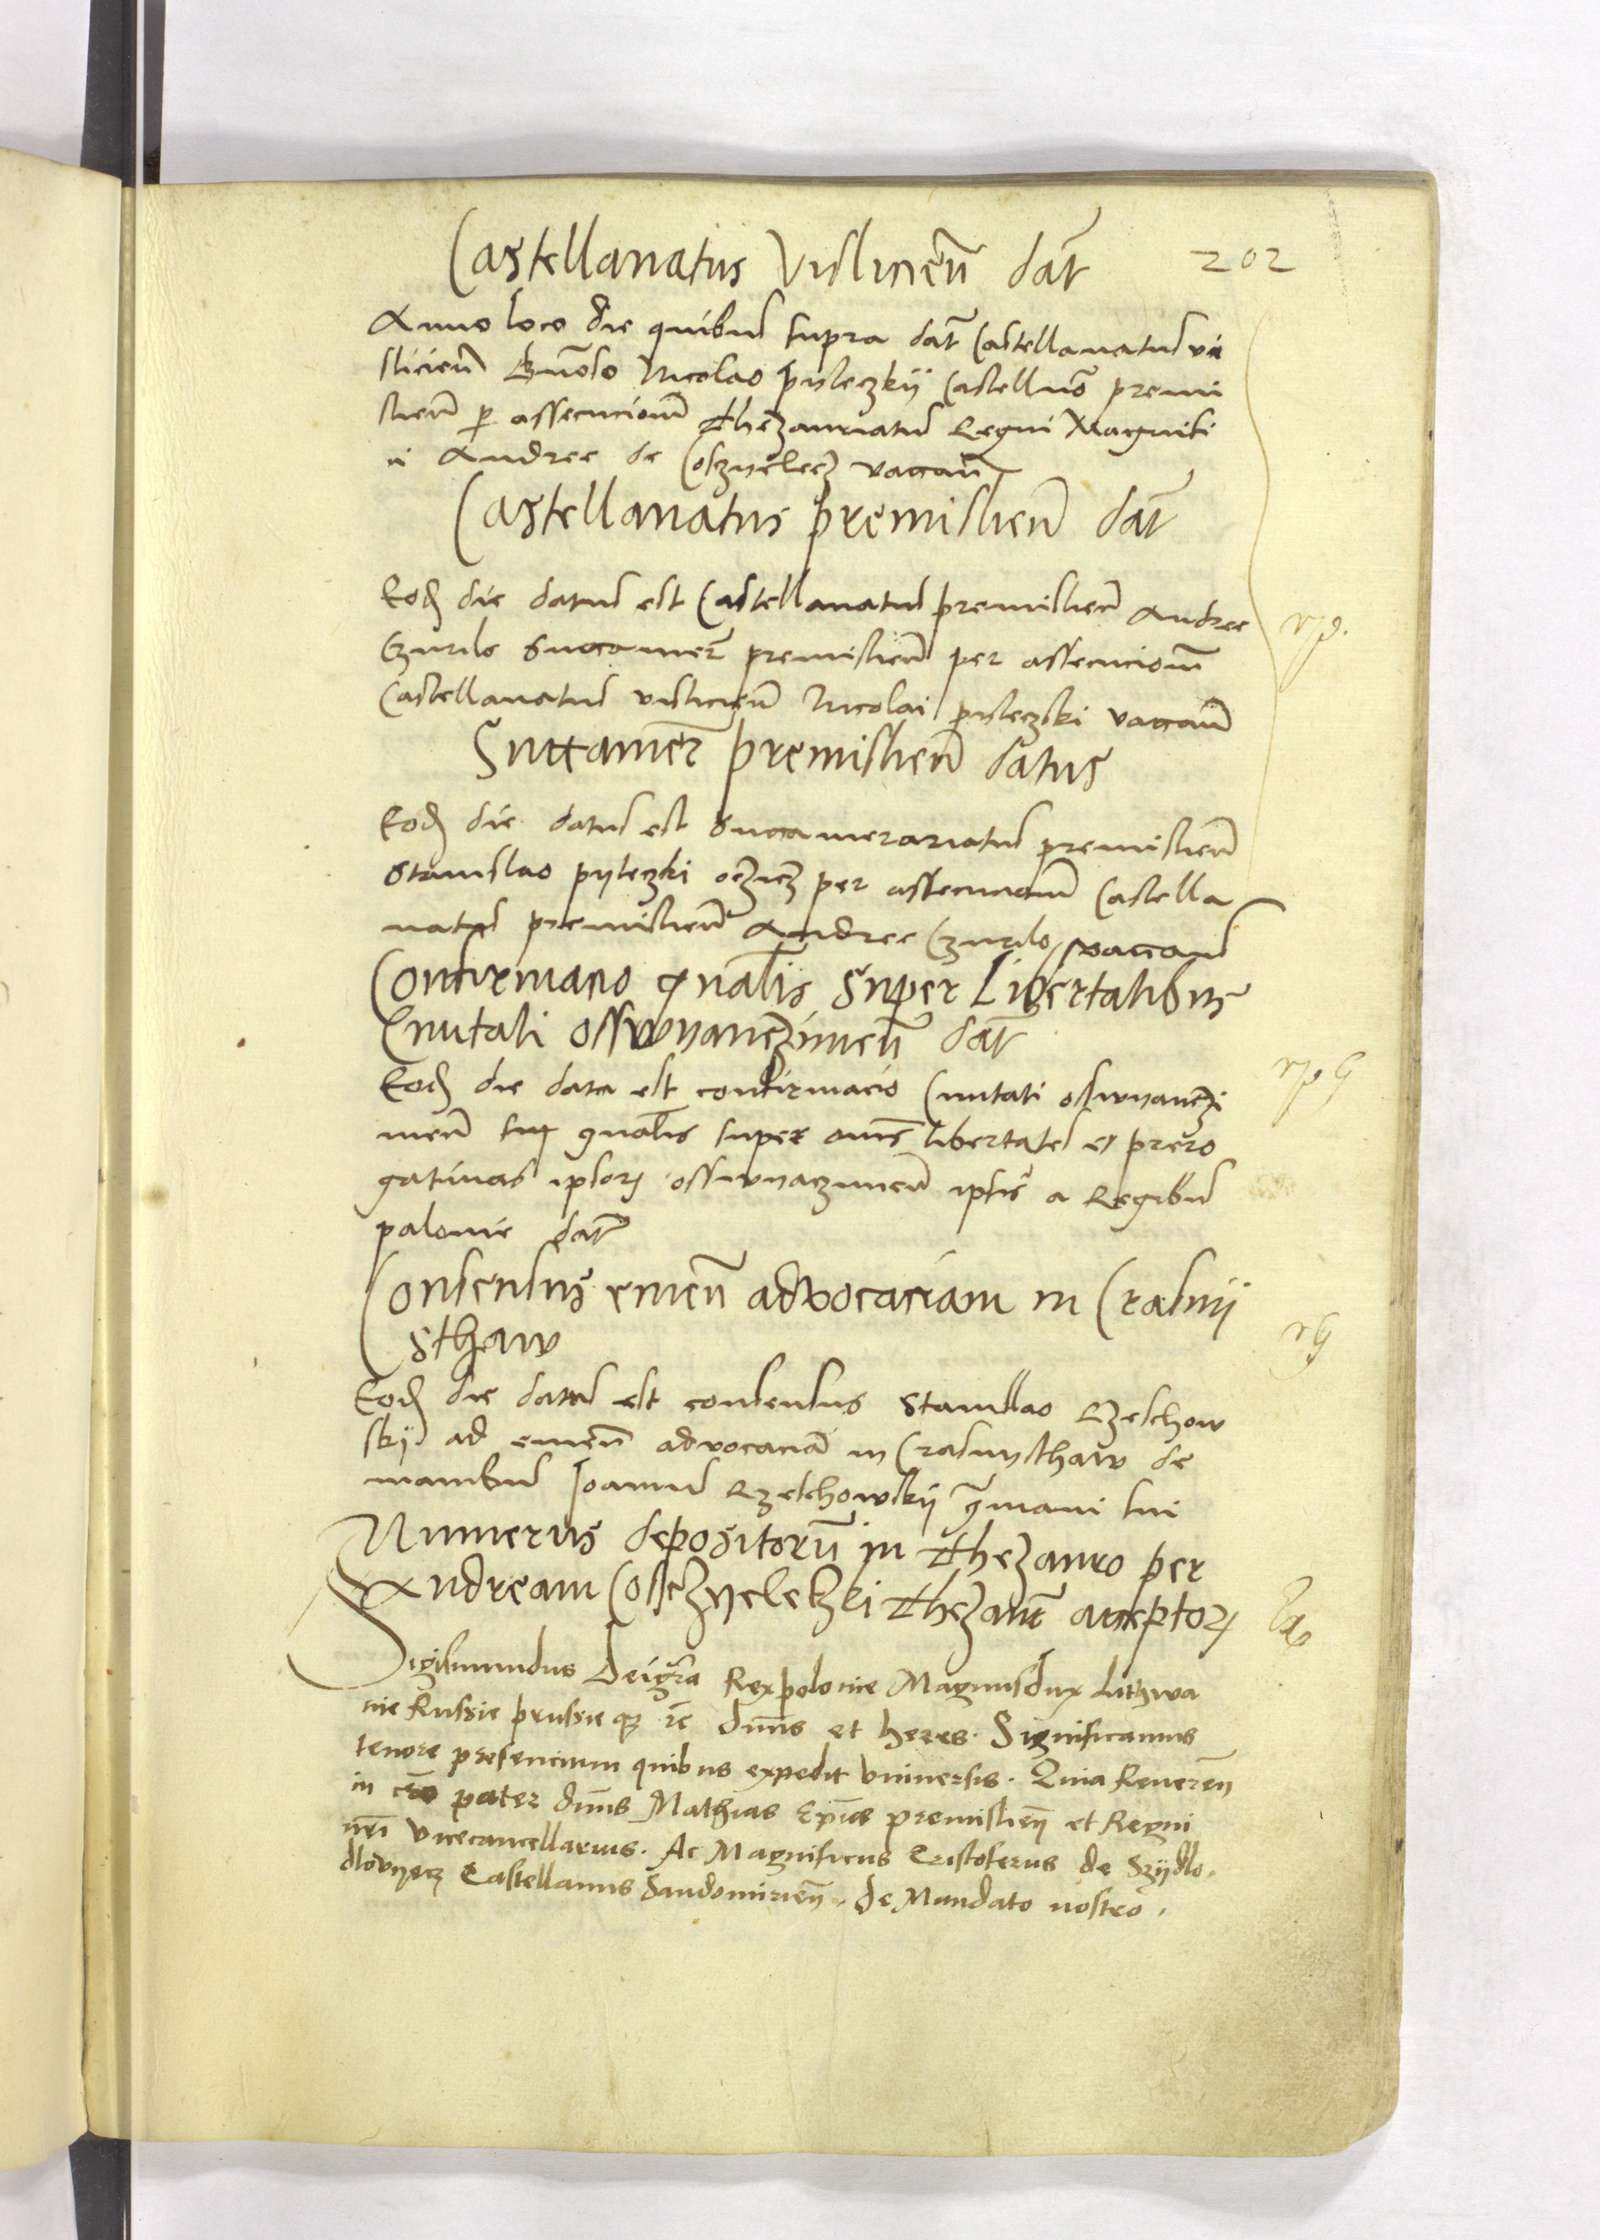 Castellanatus Vislicieñ dat̃
202
Anno loco die quibus supra dat̃ Castellanatus vi
sliciеñ Geñoso Nicolao pyleczkij Castellño premi
slieñ per assecucioñ Thezauriatus Regni Magnifi
ci Andree de Cosczyelecz vacañ
Castellanatus premislieñ dat̃
Eod̃ die datus est Castellanatus premislieñ Andree
Czurilo Succamer̃ premislieñ per assecucioñ
Castellanatus visliciеñ Nicolai pyleczski vacañ
Succamer̃ premislieñ datus
vp.
Eod̃ die datus est Succamerariatus premislieñ
Stanislao pyleczki per assecucioñ Castella
natus premislieñ Andree Czurilo vacañ
Confirmacio gñalis Super Libertatibus
Civitati osswyanczimeñ dat̃
Eod̃ die data est confirmacio Civitati osswyanczi
meñ gñalis super om̃s libertates et prero
gativas ipsorum osswyaczimeñ ipsis a Regibus
polonie dat̃
Consensus emeñ advocaciam in Crasnij
sthaw
Eod̃ die datus est consensus Stanislao Rzeschow
skij ad emeñ advocaciã in Crasnysthaw de
manibus Joannis Rzeschowskij g̃mani sui
Numerus depositorũ in Thezauro per
Andream Cosczyeleczki Thezaur̃ acceptorum
Sigismundus Dei gr̃a Rex polonie Magnus dux Lithwa
nie Russie prussie qz zc̃ dñs et heres. Significamus
tenore presencium quibus expedit vniversis. Quia Reveren̄
in cr̃o pater dñs Mathias Ep̃us premislieñ et Regni
nr̃i vicecancellarius. Ac Magnificus Cristoferus de Szijdlo.
dlovyecz Castellanus Sandomirieñ. de Mandato nostro.